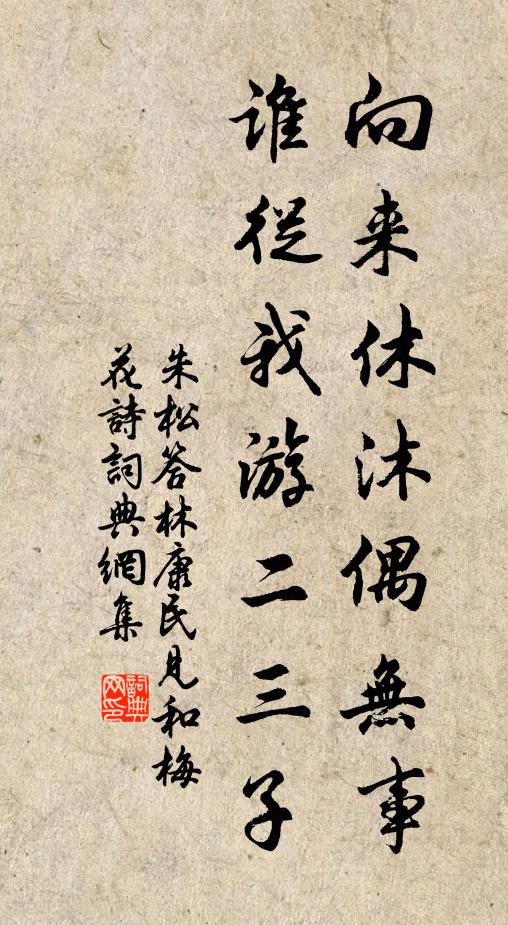 向来休沐偶無事
誰從我游二三子
朱松答林康民見和梅
花詩詞典網集
詞典
网印